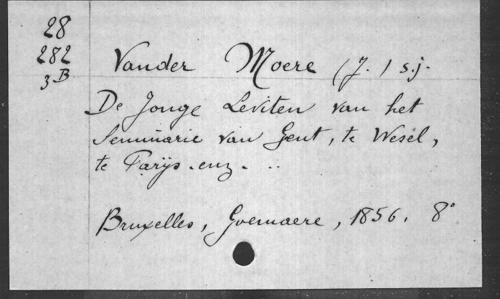 28
282
3B
Vander Moere (J.) s.j.
De Jonge Leviten van het
Seminarie van Gent, te Wesel,
te Parys. enz. ..
Bruxelles, Goemaere, 1856. 8°